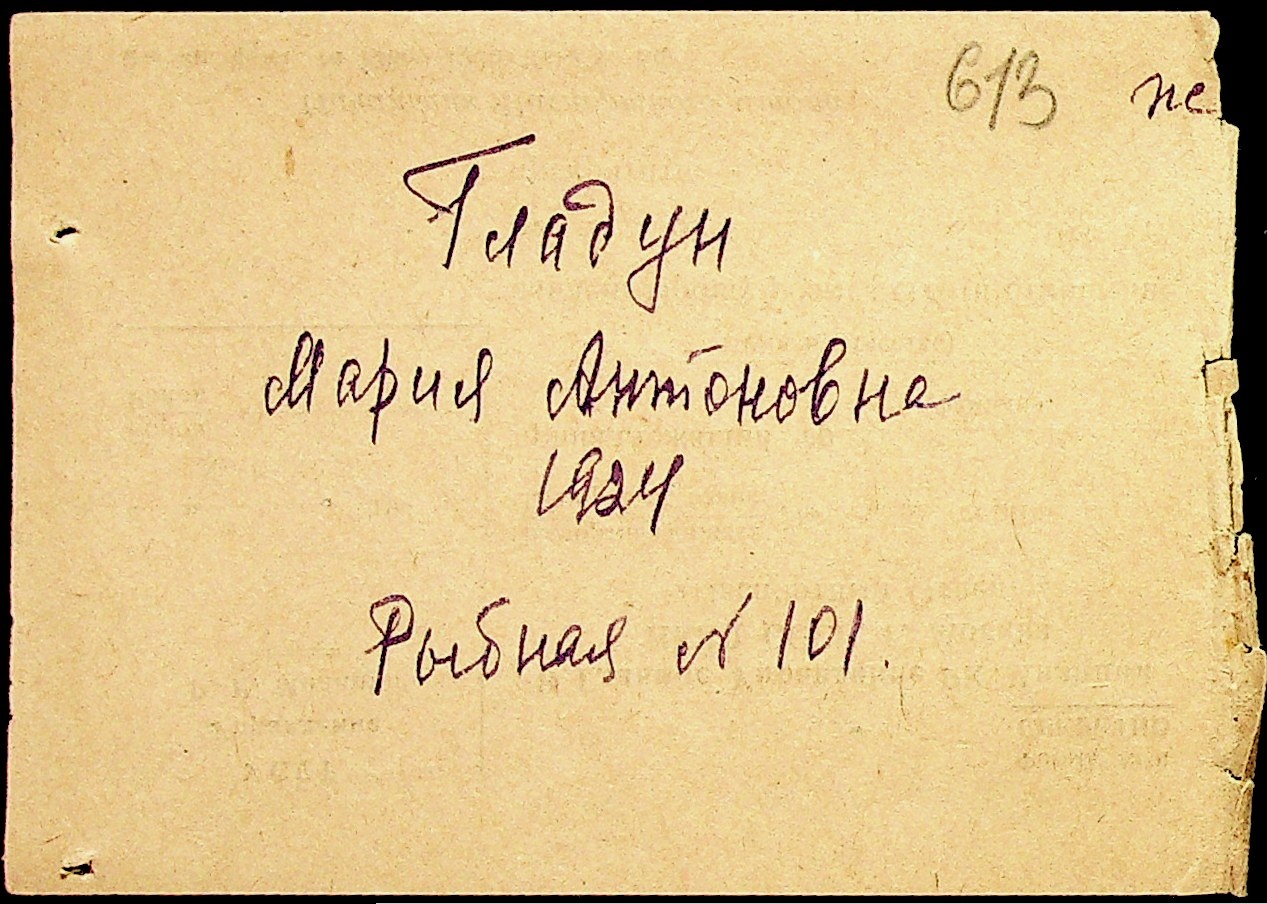 613 не
Гладун
Мария Антоновна
1924
Рыбная № 101.